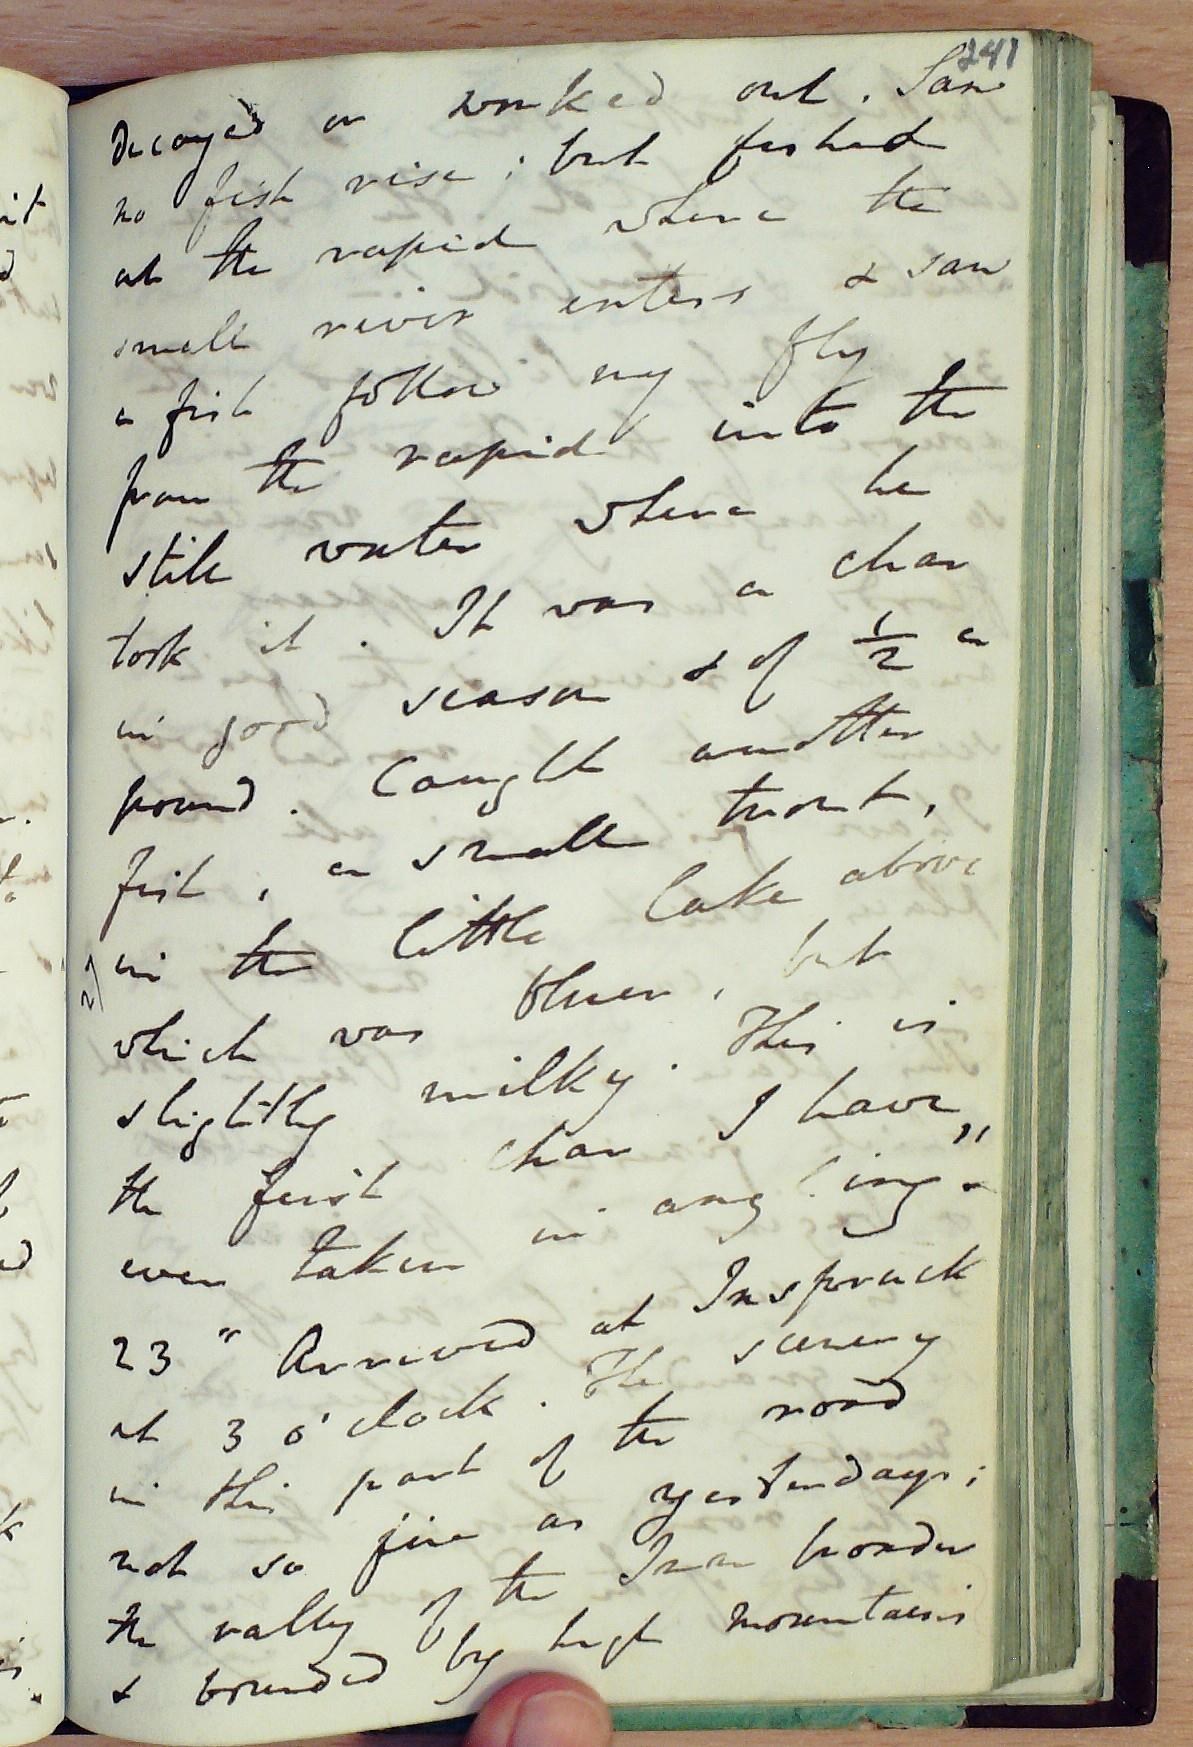 241
decayed or worked out. Saw
no fish rise; but fished
at the rapid where the
small river enters & saw
a fish follow my fly
from the rapid into the
still water where he
took it. It was a char
in good season & of ½ a
pound. Caught another
fish, a small trout,
in the little lake above
which was bluer, but
slightly milky. This is
the first char I have
ever taken in angling.
23" Arrived at Inspruck
at 3 o'clock. The scenery
in this part of the road
not so fine as yesterdays;
the valley of the Inn broader
& bounded by high mountains